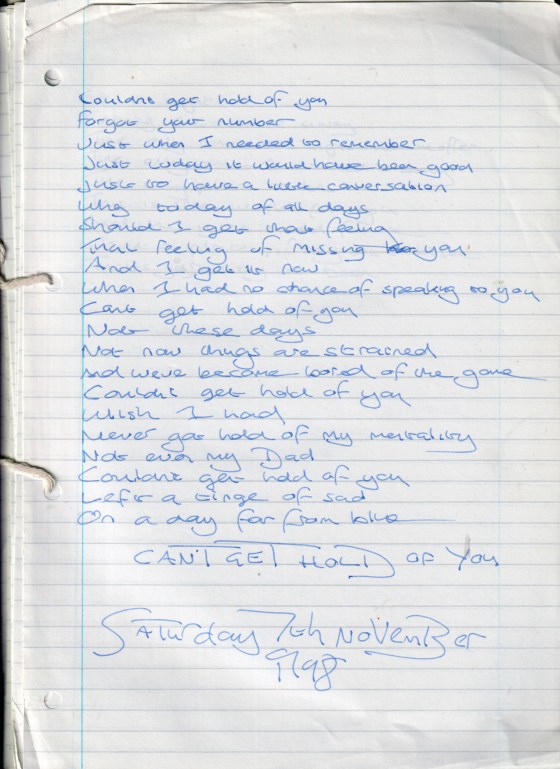 Couldnt get hold of you
Forgot your number
Just when I needed to remember
Just today it would have been good
Just to have a little conversation
Why today of all days
Should I get that feeling
That feeling of missing you
And I get it now
When I had no chance of speaking to you
Cant get hold of you
Not these days
Not now things are strained
And weve become bored of the game
Couldnt get hold of you
Whish I had
Never got hold of my mentality
Not even my Dad
Couldnt get hold of you
Left a tinge of sad
On a day far from blue
CANT GET HOLD OF YOU
SATURDAY 7th NOVEMBER
1998